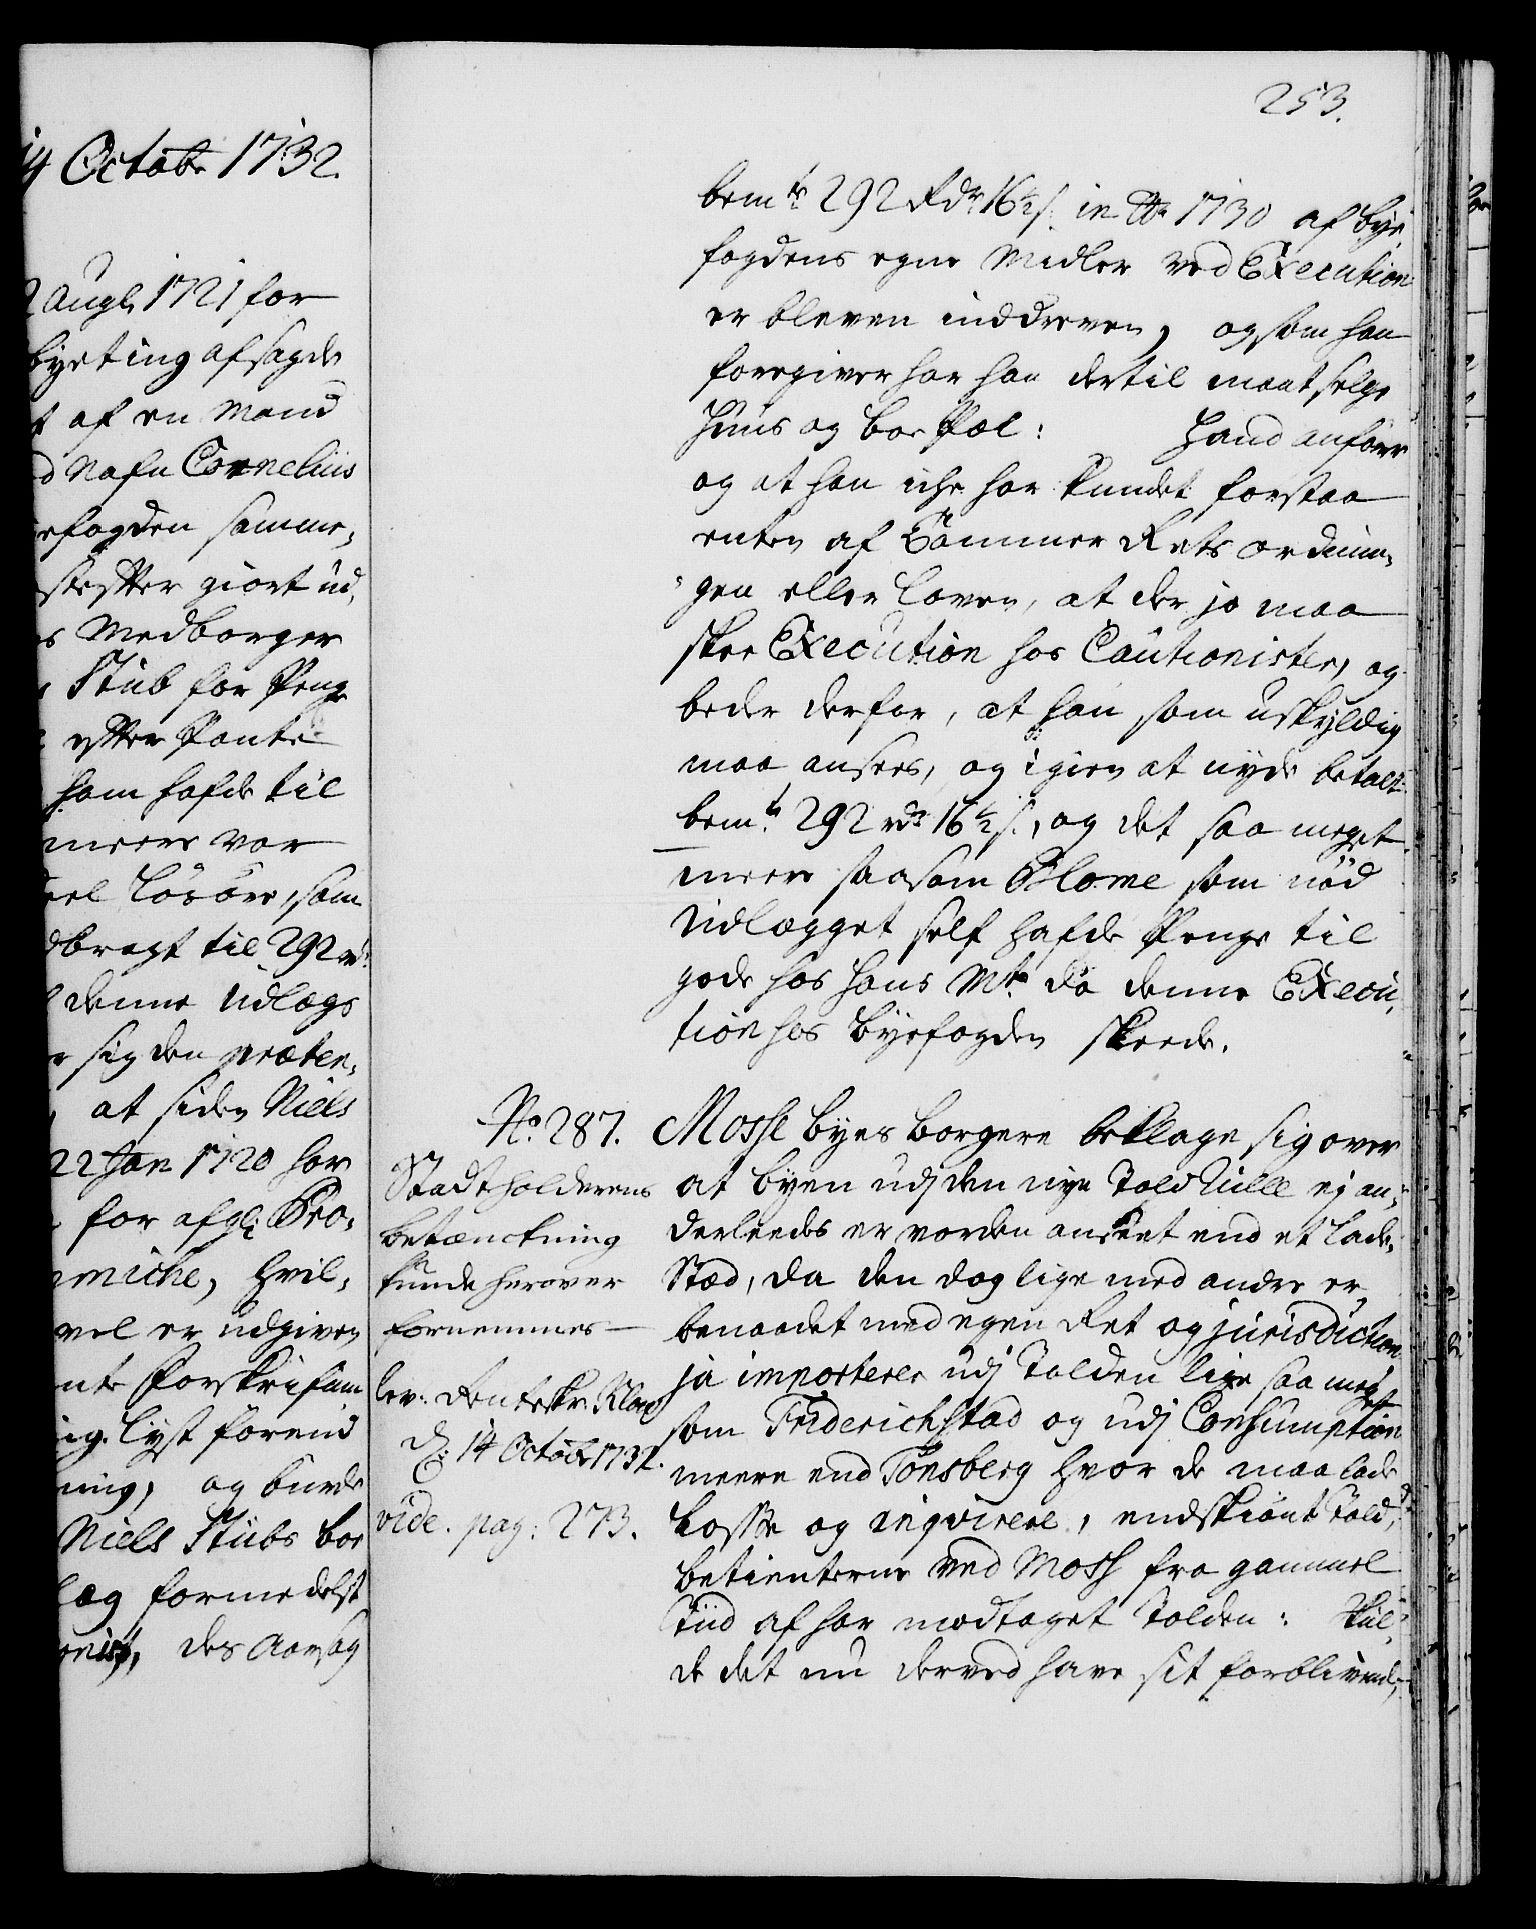 14 Octobr 1732.
2 Augl. 1721 for
byeting afsagde
af en Mand
Nafn Cornelius
efogden samme,
giort ud,
Medborger
Stub for Penge
efter Pante
ham hafde til
meere var
Løsøre, som
dbragt til 292 rdr
denne Udlægs
sig den præten,
at siden Niels
22 Jan 1720 har
for afgl: Pro,
miche, hvil,
vel er udgiven
nte Forskrifum
lyst forend
ning, og burde
Niels Stübs boe
læg formedelst
des Aarsag
253.
bemte 292 Rdr 16½ s: in Xbr 1730 af bye
fogdens egne Midler ved Execution
er bleven inddreven, og som han
foregiver har han dertil maat selge
Huus og boeskal: Hand anfører
og at han iche har kundet forstaa
enten af Cammer Rets ordnin,
gen eller Loven, at der jo maa
skee Execution hos Cautionister, og
beder derfor, at han som uskyldig
maa ansees, og igien at nyde betalt
bemte 292 rdr 16½ s:, og det saa meget
meere saasom Blome som nød
Udlægget self hafde Penge til
gode hos Hans Mt. da denne Execu,
tion hos Byefogden skeede.
No. 287.
Stadtholderens
betænckning
kunde herover
fornemmes
lev: Renteskr: Klow
d: 14 Octobr 1732.
vide. pag: 273.
Mosse byes borgere beklage sig over
at byen udj den nye Told Rulle ej an,
derleedes er vorden anseet end et Lade,
Stæd, da den dog lige med andre er,
benaadet med egen Ret og jurisdiction
ja importerer udj Tolden lige saa meget
som Friderichstad og udj Consumption
meere end Tønsberg hvor de maa lade
Losse og inqvirere, endskiønt Told,
betienterne ved Moss fra gammel
Tiid af har modtaget Tolden: Skul,
de det nu derved have sit forblivende,